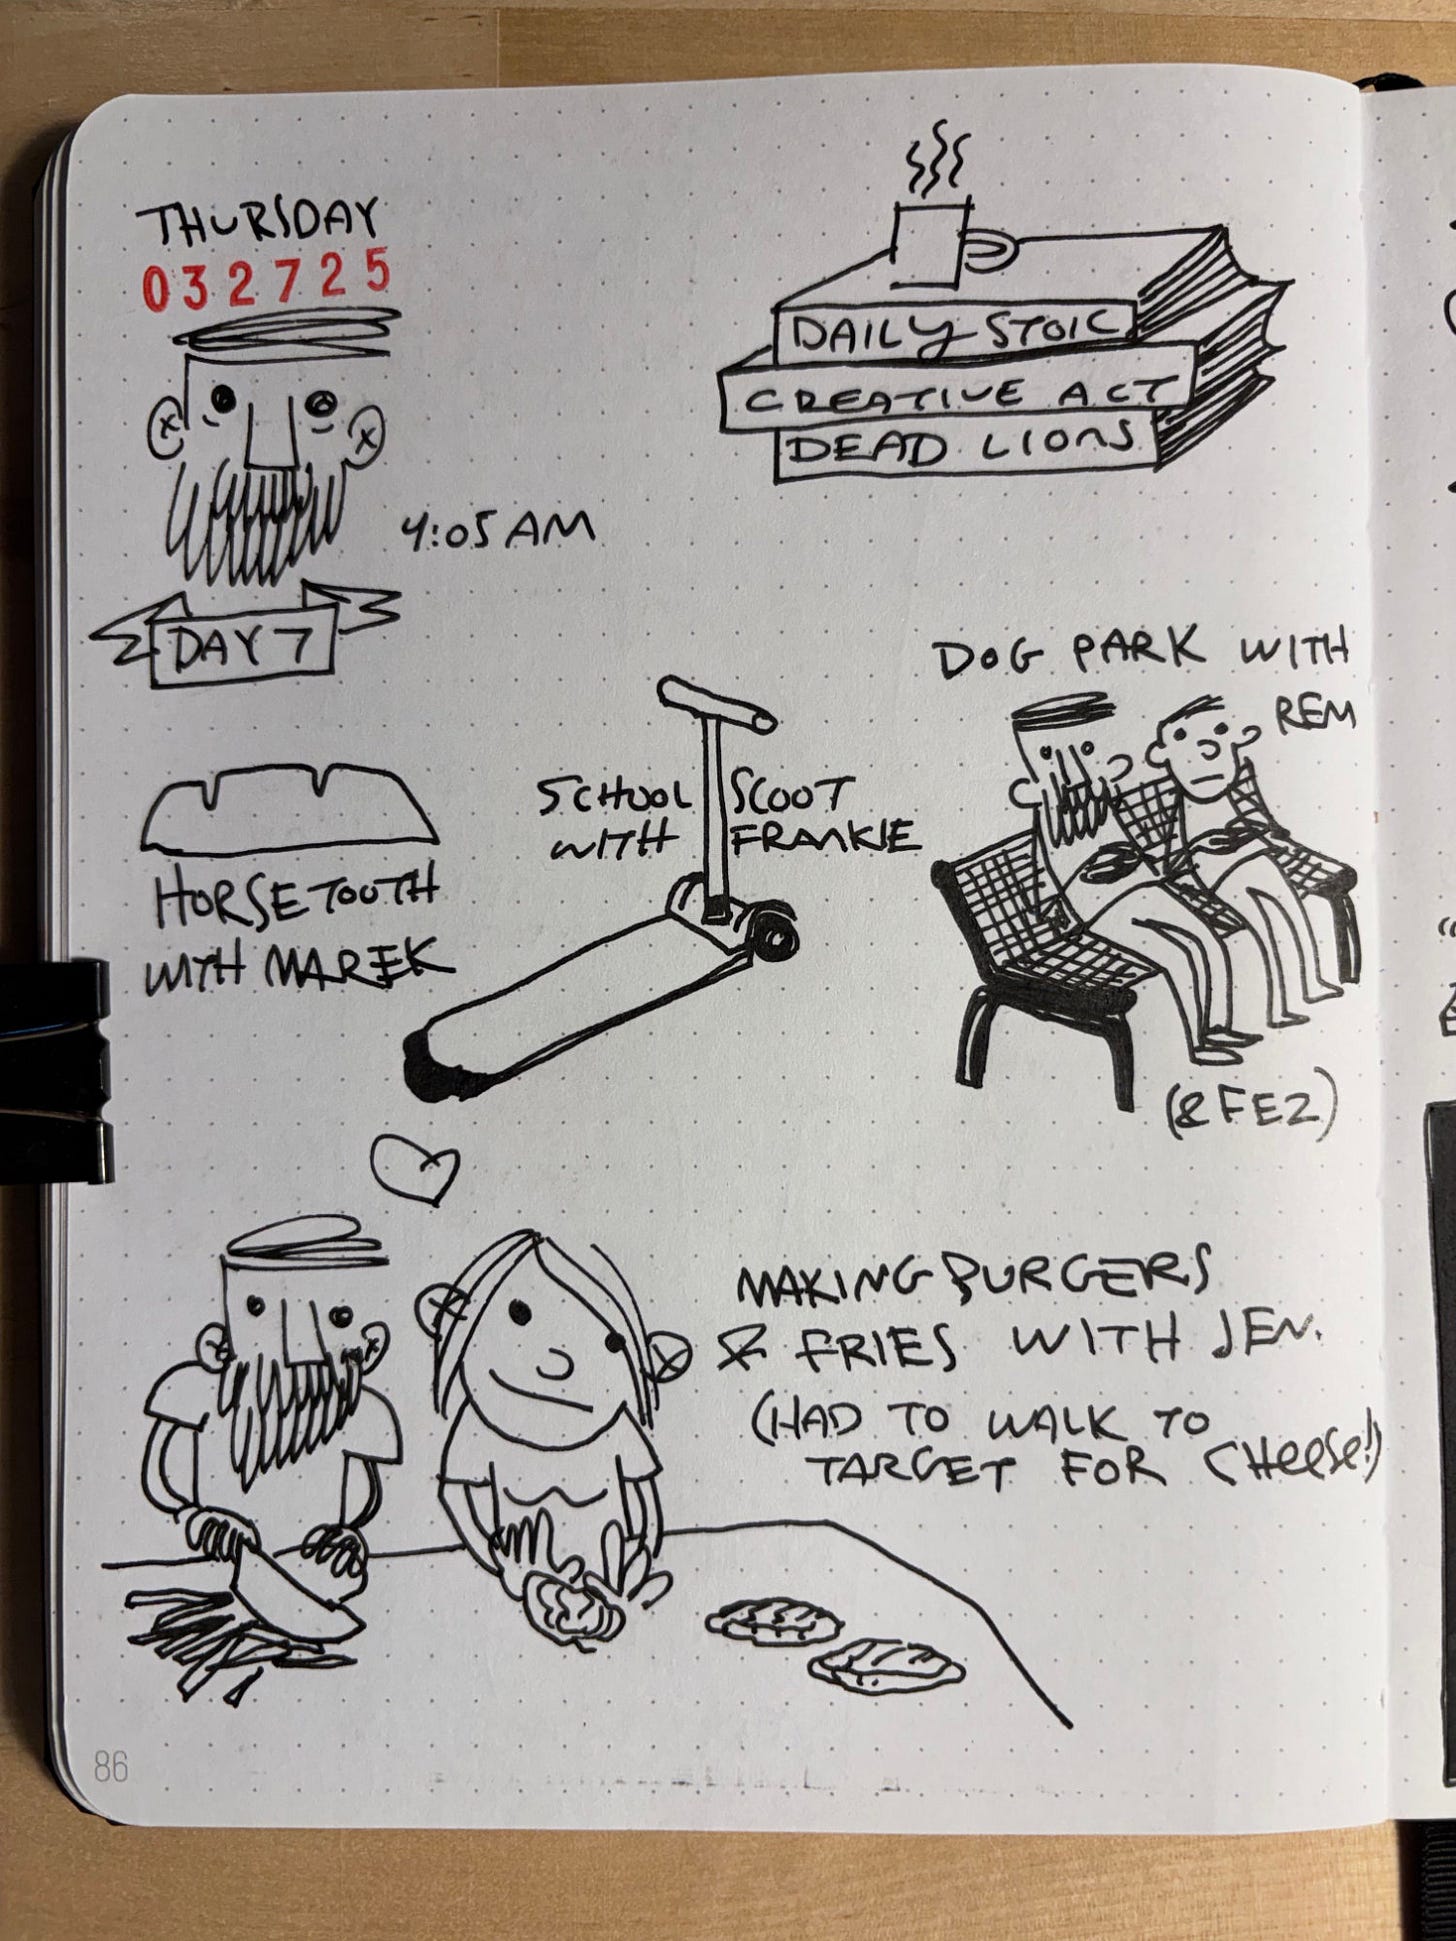 THURSDAY
032725
4:05 AM
DAY 7
DAILY STOIC
CREATIVE ACT
DEAD LIONS
HORSETOOTH
WITH MAREK
SCHOOL SCOOT
WITH FRANKIE
DOG PARK WITH
REM
(& FEZ)
MAKING BURGERS
& FRIES WITH JEN.
(HAD TO WALK TO
TARGET FOR CHEESE!)
86